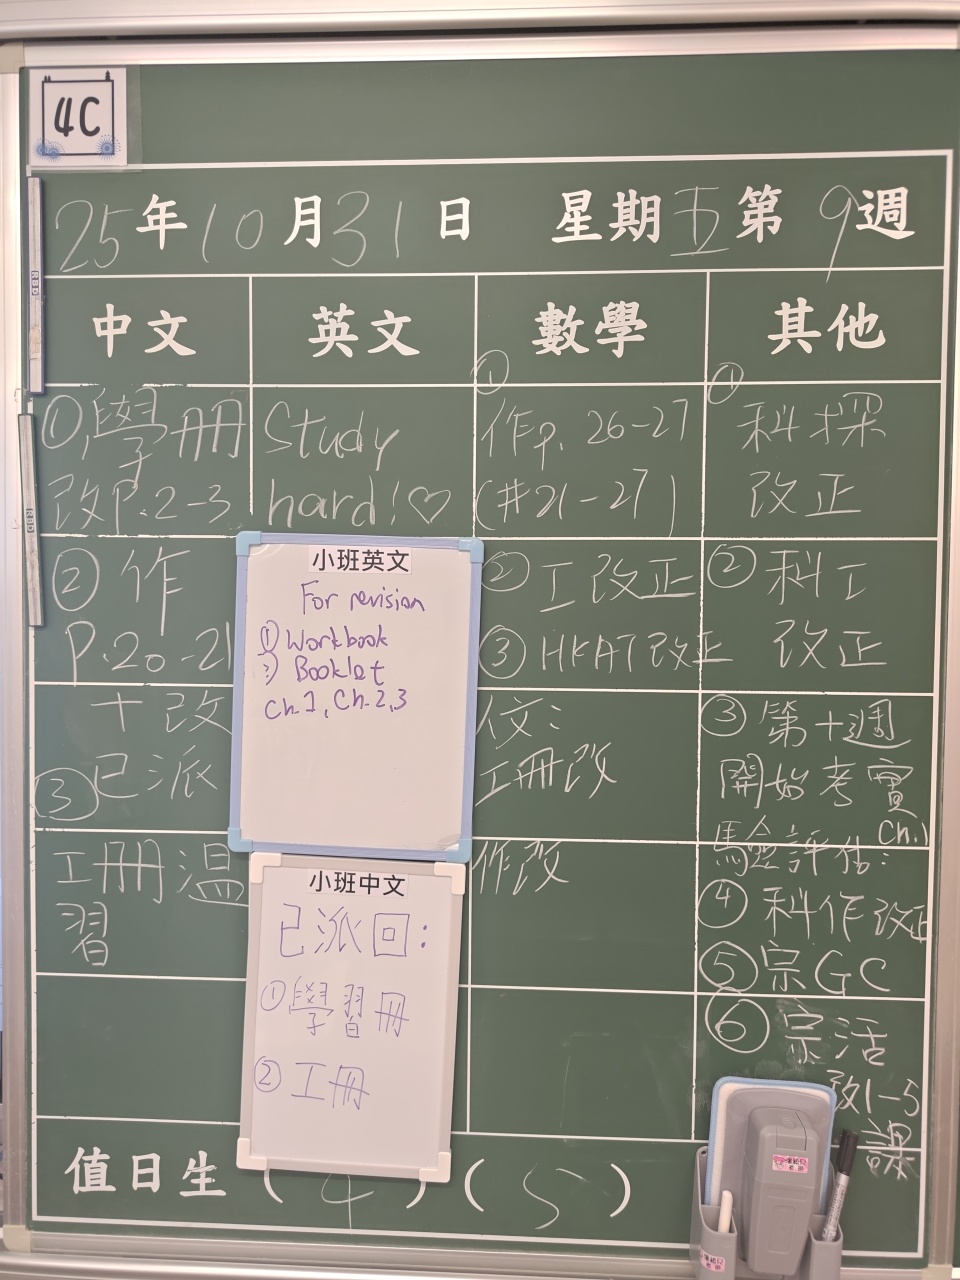 4C
25年10月31日 星期五第9週
中文
①學冊
改P.2-3
② 作
P.20-21
十改
③已派
工冊溫
習
英文
Study
hard!♡
小班英文
For revision
① Workbook
② Booklet
Ch.1, Ch.2,3
小班中文
已派回:
①學習冊
②工冊
數學
①
作p.26-27
(#21-27)
②工改正
③HKAT改正
欠:
工冊改
作改
其他
①
科探
改正
②科工
改正
③第十週
開始考實
驗評估: Ch.1
④科作改正
⑤宗GC
⑥宗活
改1-5
課
值日生 (4)(5)